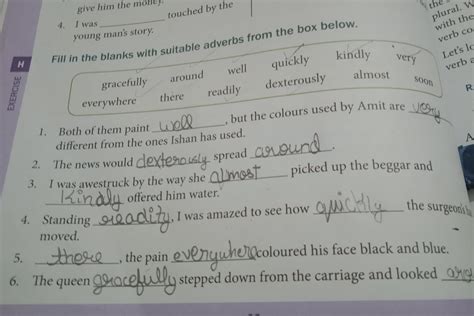 give him the money.
4. I was touched by the
young man's story.
Fill in the blanks with suitable adverbs from the box below.
EXERCISE H
gracefully around well quickly kindly very
everywhere there readily dexterously almost soon
1. Both of them paint well, but the colours used by Amit are very
different from the ones Ishan has used.
2. The news would dexterously spread around.
3. I was awestruck by the way she almost picked up the beggar and
Kindly offered him water.
4. Standing readily, I was amazed to see how quickly the surgeon's
moved.
5. there, the pain everywhere coloured his face black and blue.
6. The queen gracefully stepped down from the carriage and looked
the
plural. W
with the
verb co
Let's l
verb a
R
A